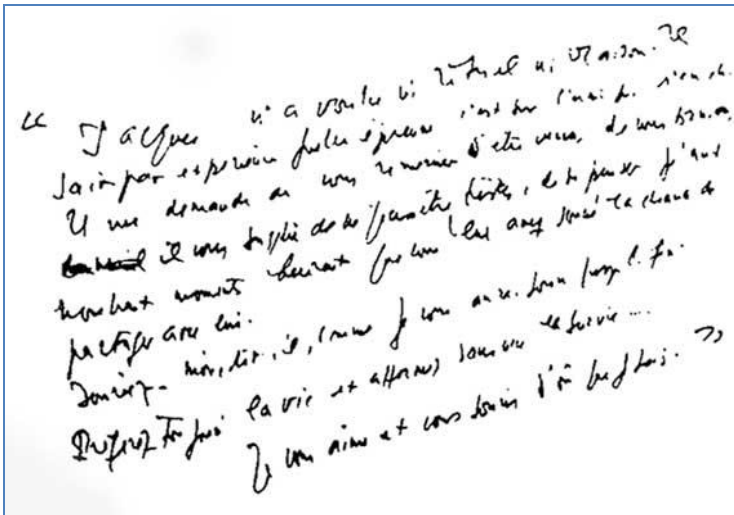 « Jacques n'a voulu ni rituel ni oraison. Il
sait par expérience quelle épreuve c'est pour l'ami qui s'en ch.
Il me demande de vous remercier d'être venus, de vous bénir,
il vous supplie de ne pas être tristes, de ne penser qu'aux
nombreux moments heureux que vous lui avez donné la chance de
partager avec lui.
Souriez-moi, dit-il, comme je vous aurai souri jusqu'à la fin.
Préférez toujours la vie et affirmez sans cesse la survie....
Je vous aime et vous souris d'où que je sois. »